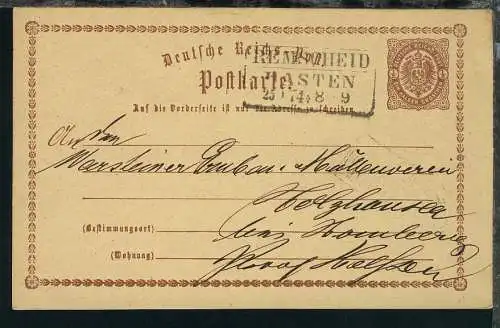 Deutsche Reichs-Post
REMSCHEID
Postkarte.
HASTEN
25 74 8-9
Auf die Vorderseite ist nur die Adresse zu schreiben.
An den
Warsteiner Gruben- u. Hüttenverein
Holzhausen
(Bestimmungsort) bei Homberg
(Wohnung)